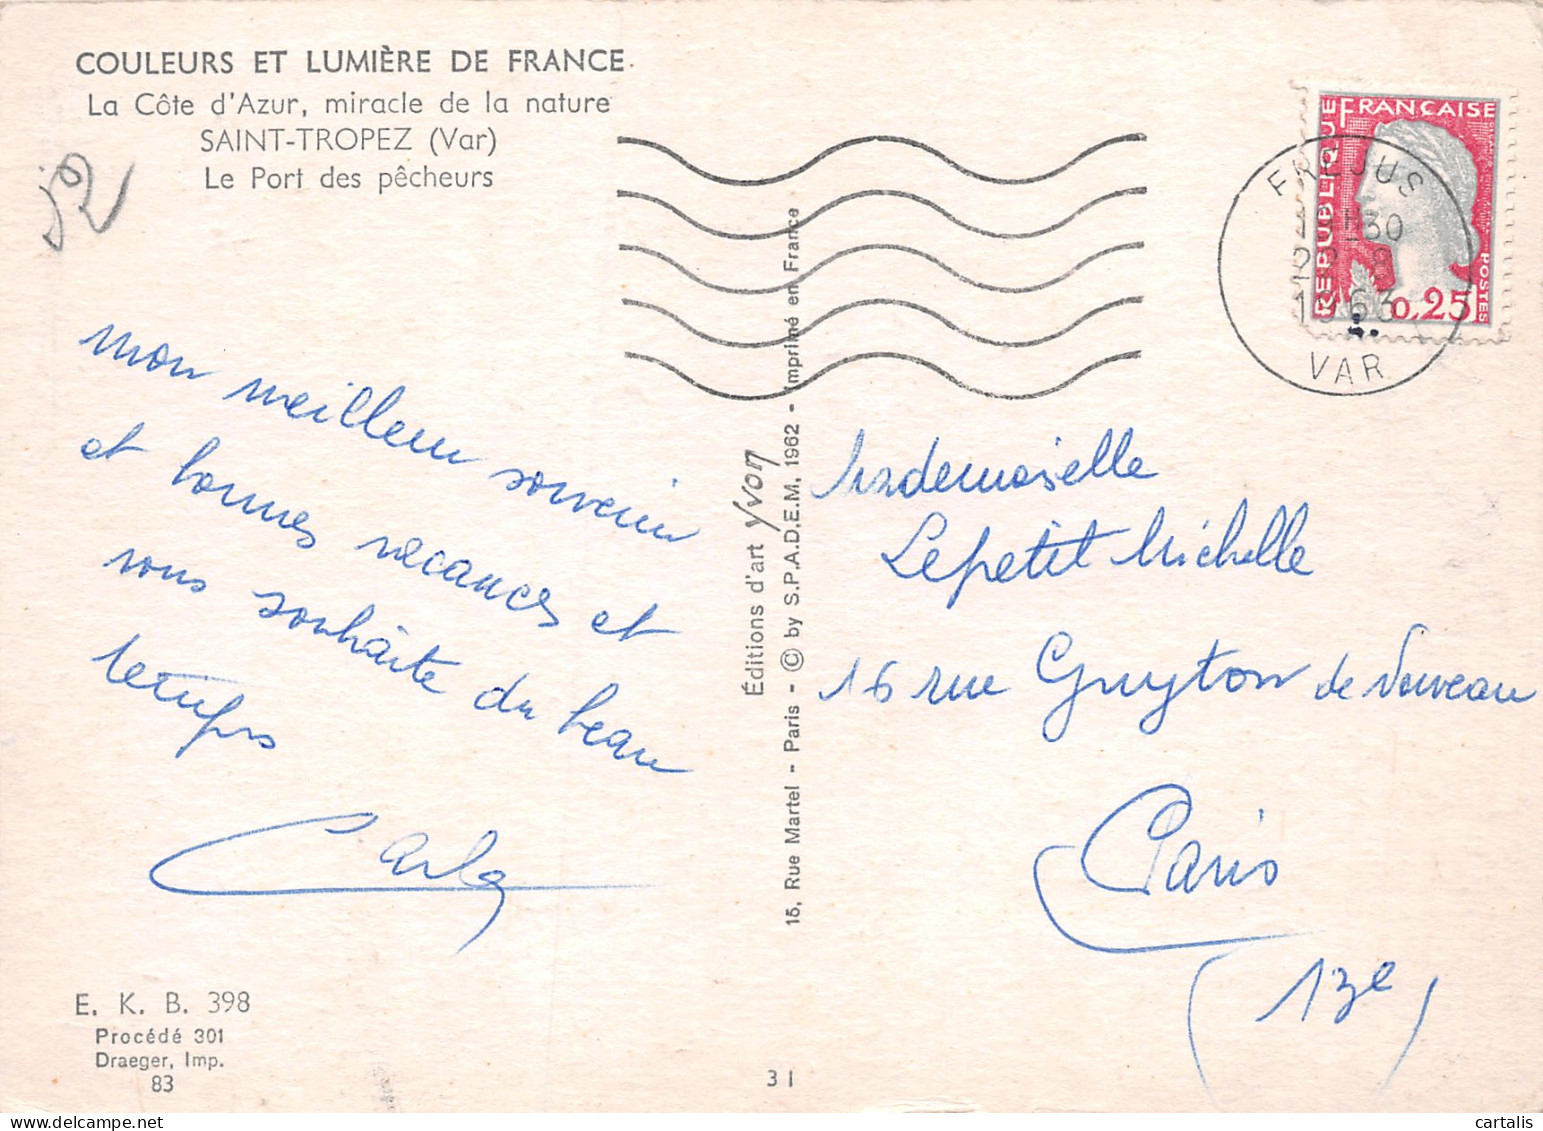 COULEURS ET LUMIÈRE DE FRANCE
La Côte d'Azur, miracle de la nature
SAINT-TROPEZ (Var)
Le Port des pêcheurs
mon meilleur souvenir
et bonnes vacances et
vous souhaite du beau
temps
Carla
E. K. B. 398
Procédé 301
Draeger, Imp.
83
Éditions d'art Yvon
15, Rue Martel - Paris - © by S.P.A.D.E.M. 1962 - Imprimé en France
31
RÉPUBLIQUE
FRANÇAISE
POSTES
0,25
FREJUS
-30
22 9
1963
VAR
Mademoiselle
Lepetit Michelle
16 rue Guyton de Verveau
Paris
(13e)
cartalis